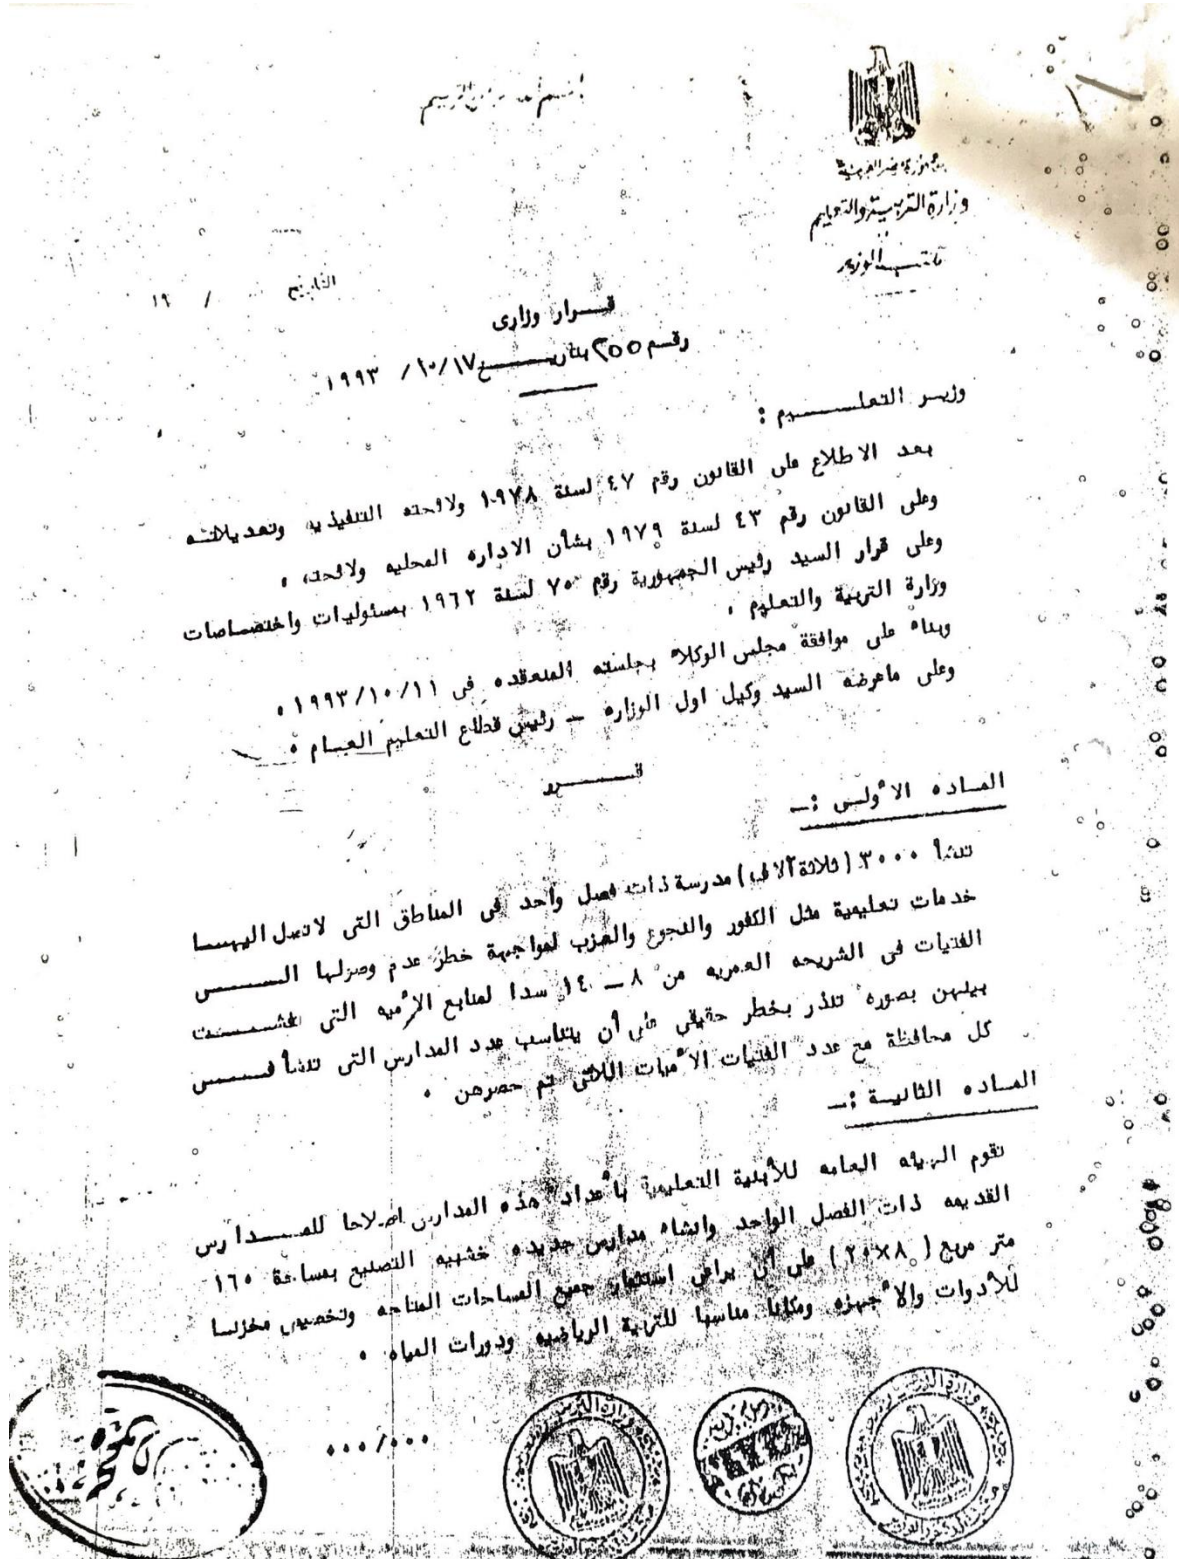 جمهورية مصر العربية
وزارة التربية والتعليم
مكتب الوزير
التاريخ / ١٩
قـــرار وزارى
رقم ٢٥٥ بتاريـــــخ ١٧/ ١٠/ ١٩٩٣
وزيـر التعلـــــيم :
بعد الاطلاع على القانون رقم ٤٧ لسنة ١٩٧٨ ولائحته التنفيذيه وتعديلاتـه
وعلى القانون رقم ٤٣ لسنة ١٩٧٩ بشأن الاداره المحليه ولائحته .
وعلى قرار السيد رئيس الجمهورية رقم ٧٥٠ لسنة ١٩٦٢ بمسئوليات واختصـاصات
وزارة التربية والتعليم .
وبناء على موافقة مجلس الوكلاء بجلسته المنعقده فى ١٩٩٣/١٠/١١ .
وعلى ماعرضه السيد وكيل اول الوزاره ــ رئيس قطاع التعليم العـام .
قـــــرر
المـاده الأولـى :ــ
تنشأ ٣٠٠٠ (ثلاثة آلاف) مدرسة ذات فصل واحد فى المناطق التى لاتصل اليهـــا
خدمات تعليمية مثل الكفور والنجوع والعزب لمواجهة خطر عدم وصولها الـــــى
الفتيات فى الشريحه العمريه من ٨ ــ ١٤ سدا لمنابع الأميه التى
بينهن بصوره تنذر بخطر حقيقى على أن يتناسب عدد المدارس التى تنشأ فــــى
كل محافظة مع عدد الفتيات الأميات اللاتى تم حصرهن .
المـاده الثانيـة :ــ
تقوم الهيئه العامه للأبنية التعليمية بأعداد هذه المدارس اصلاحا للمـــدارس
القديمه ذات الفصل الواحد وانشاء مدارس جديده خشبيه التصنيع بمساحة ١٦٠
متر مربع ( ٨×٢٠ ) على أن يراعى استثمار جميع المساحات المتاحه وتخصيص مخزنـا
للأدوات والأجهزه ومكانا مناسبا للتربية الرياضيه ودورات المياه .
٠٠٠/٠٠٠